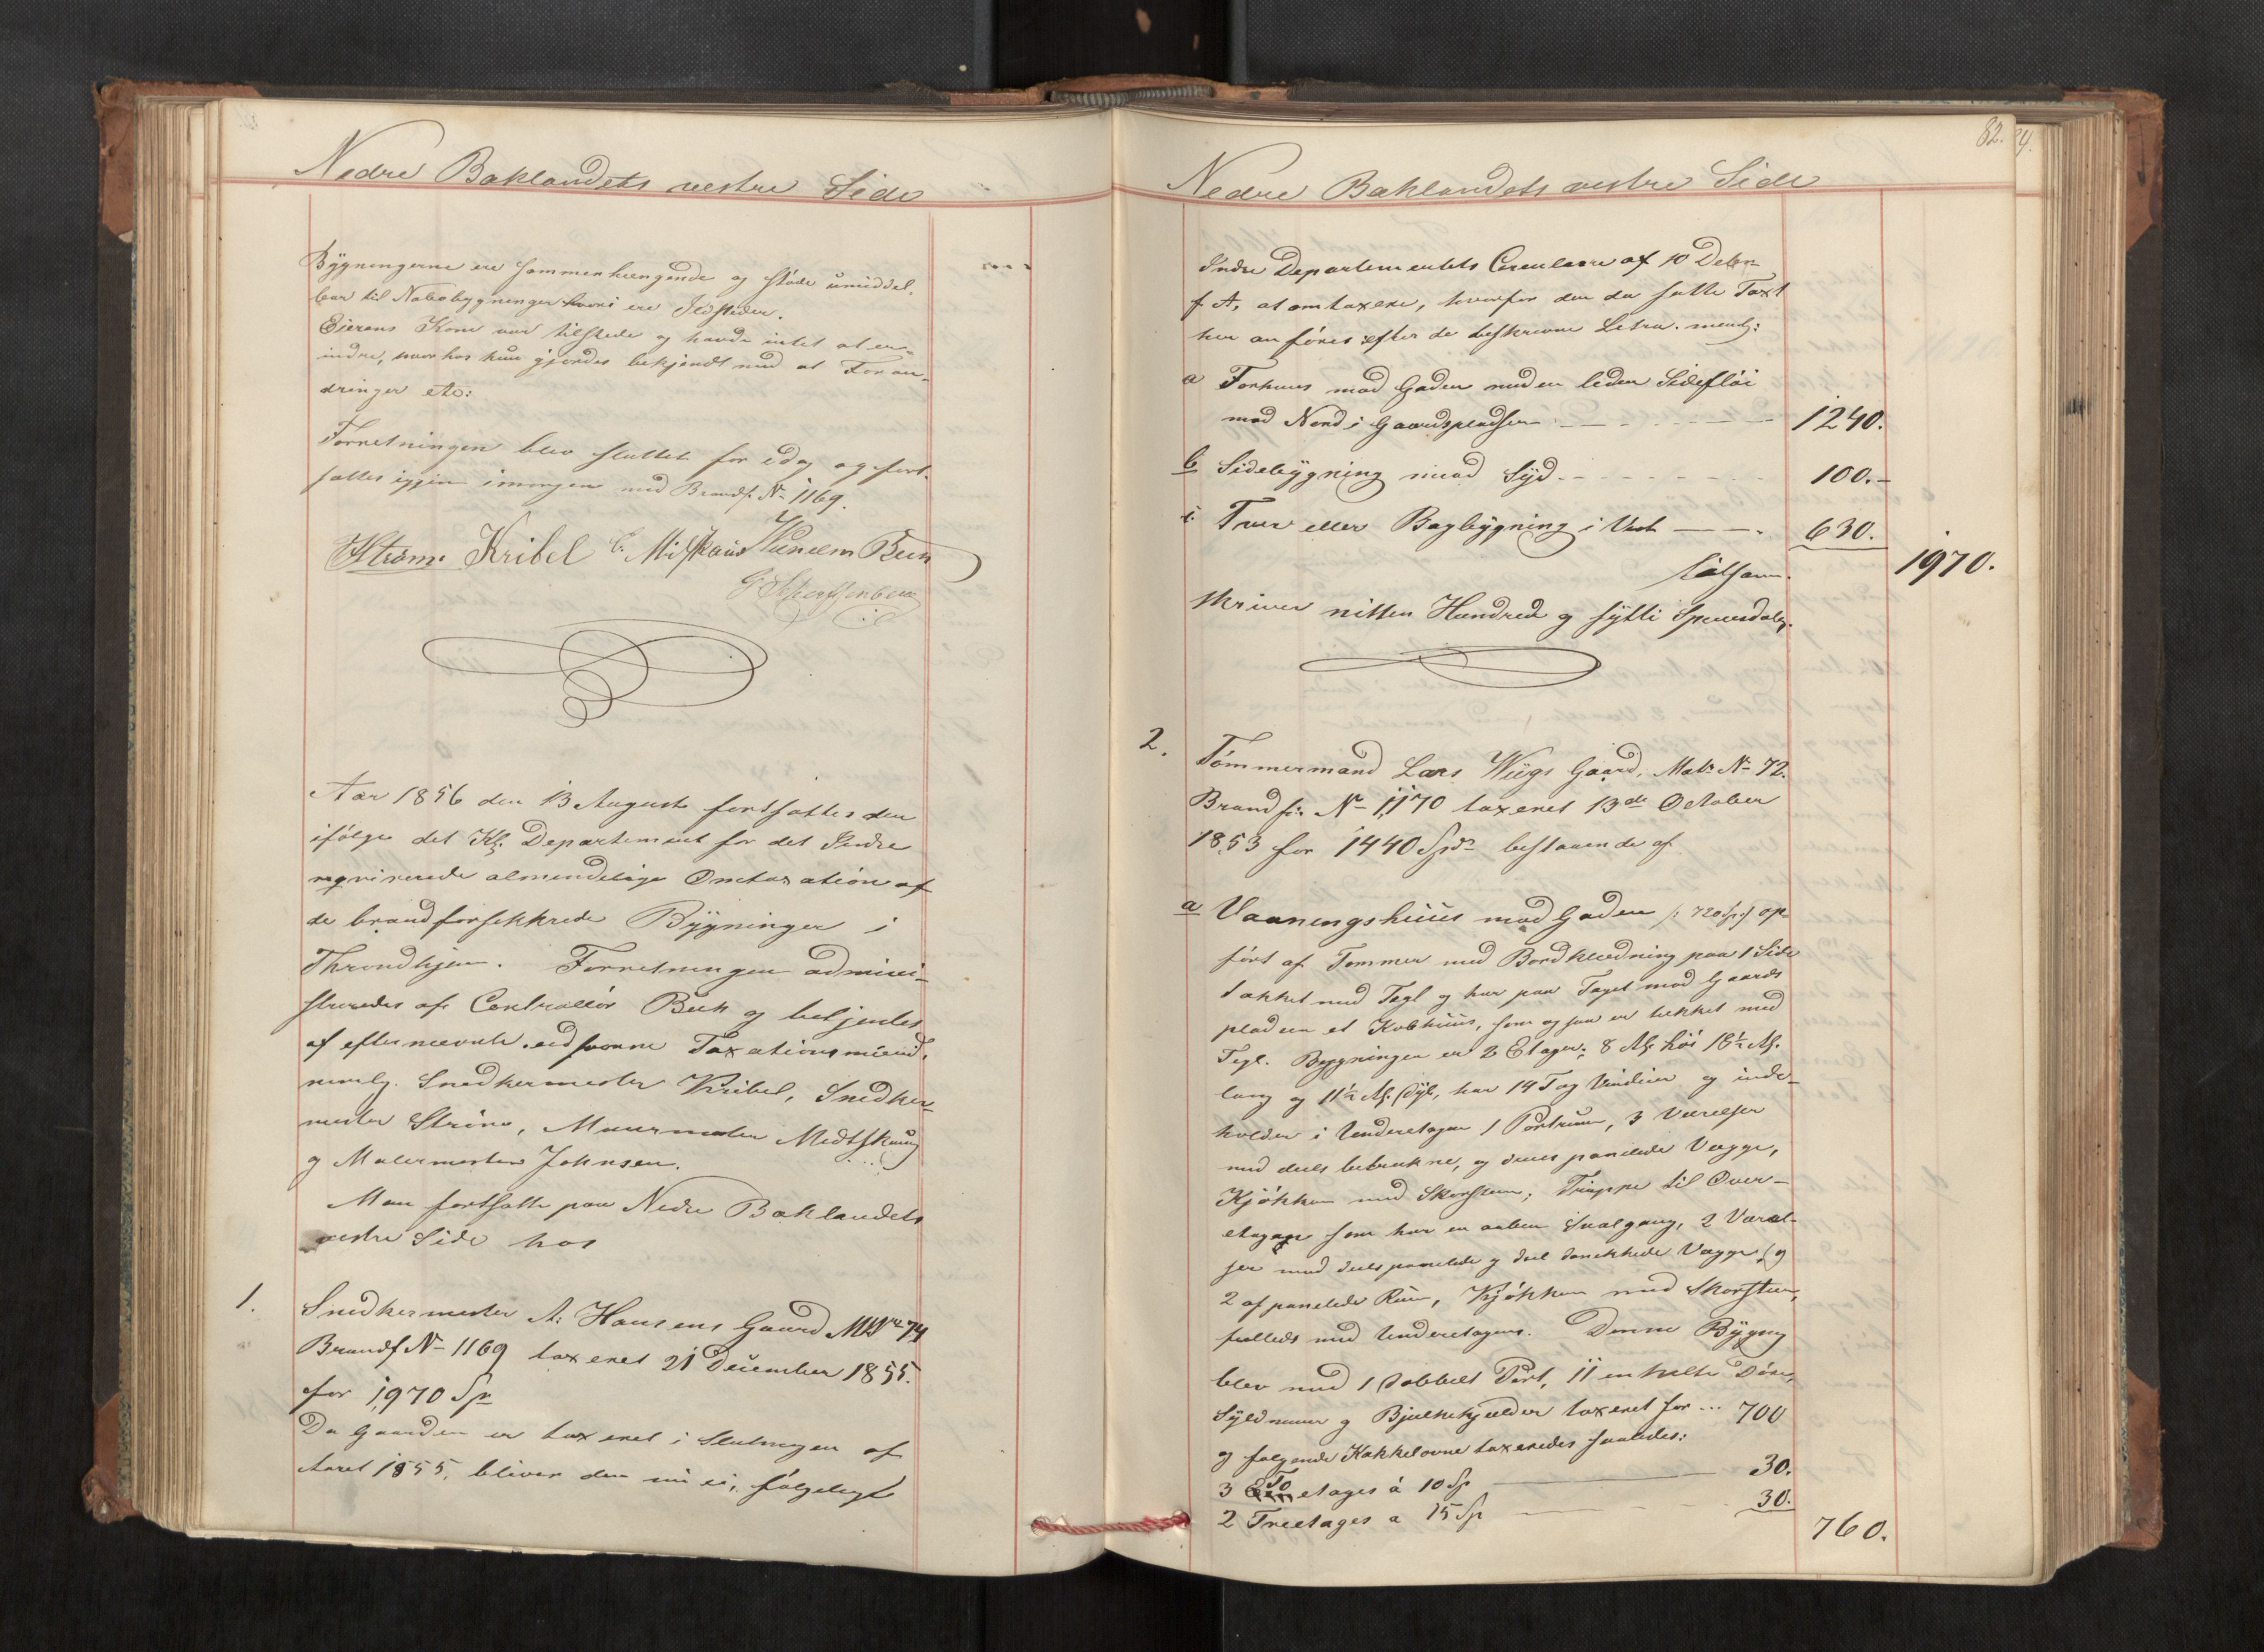 Nedre Baklandets vestre Side
Bygningerne ere sammenhængende og støde umiddel-
bar til Nabobygninger hvori ere Ildsteder.
Eierens Kone var tilstede og havde intet at er-
indre, hvorhos hun gjordes bekjendt med at Foran-
dringer etc:
Forretningen blev sluttet for idag og fort-
sættes igjen imorgen med Brandf. No 1169.
Strøm. Kribel C. Midtskaug Beck
Aar 1856 den 13 August fortsattes den
ifølge det Kgl. Departement for det Indre
reqvirerede almindelige Omtaxation af
de brandforsikkrede Bygninger i
Throndhjem. Forretningen admini-
streredes af Controllør Beck og betjentes
af efternævnte eedsvorne Taxationsmænd,
nemlg. Snedkermester Kribel, Snedker-
mester Strøm, Muurmester Midtskaug
og Malermester Johnsen.
Man fortsatte paa Nedre Baklandets
vestre Side hos
1.
Snedkermester A: Hansens Gaard MNr 74
Brandf No 1169 taxeret 21 December 1855.
for 1,970 Sp
Da Gaarden er taxeret i Slutningen af
Aaret 1855, bliver den nu ei, følgeligt
82. 4.
Nedre Baklandets vestre Side
Indre Departementets Circulaire af 10 Debr
f. A, at omtaxere, hvorfor den da satte Taxt
her anføres efter de beskrevne Letra. nemlg:
a Forhuus mod Gaden med en liden Sidefløi
mod Nord i Gaardspladsen 1240.
b Sidebygning mod Syd 100.-
c: Tver eller Bagbygning i Vest 630.
Tilsam. 1970.
skriver nitten Hundrede og sytti Speciesdaler.
2.
Tømmermand Lars Wiigs Gaard, Matr No 72.
Brandfs: No 1,170 taxeret 13de October
1853 for 1440 Spd bestaaende af
a Vaaningshuus mod Gaden /: 720 Sp :/ op-
ført af Tømmer med Bordklædning paa 1 Side
takket med Tegl og har paa Taget mod Gaards
pladsen et Kobhuus, som ogsaa er tækket med
Tegl. Bygningen er 2 Etager: 8 Al. høi 18½ Al.
lang og 11½ Al. dyb, har 14 Fag Vinduer og inde-
holder i Underetagen 1 Portrum, 3 Værelser
med deels betrukne, og deels panelede Vægge,
Kjøkken med Skorsteen; Trappe til Over-
etagen som har en aaben Svalgang, 2 Værel-
ser med deels panelede og deel Vægge, og
2 afpanelede Rum, Kjøkken med Skorsteen,
fælleds med Underetagens. Denne Bygning
blev med 1 dobbelt Port, 11 enkelte Døre,
Syldmuur og Bjelkekjelder taxeret for ... 700
og følgende Kakkelovne taxeredes saaledes:
3 To etages á 10 Sp 30.
2 Treetages a 15 Sp 30.
760.